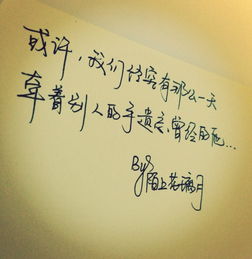 或许，我们终究有那么一天
牵着别人的手遗忘曾经的他...
By: 陌上花璃月